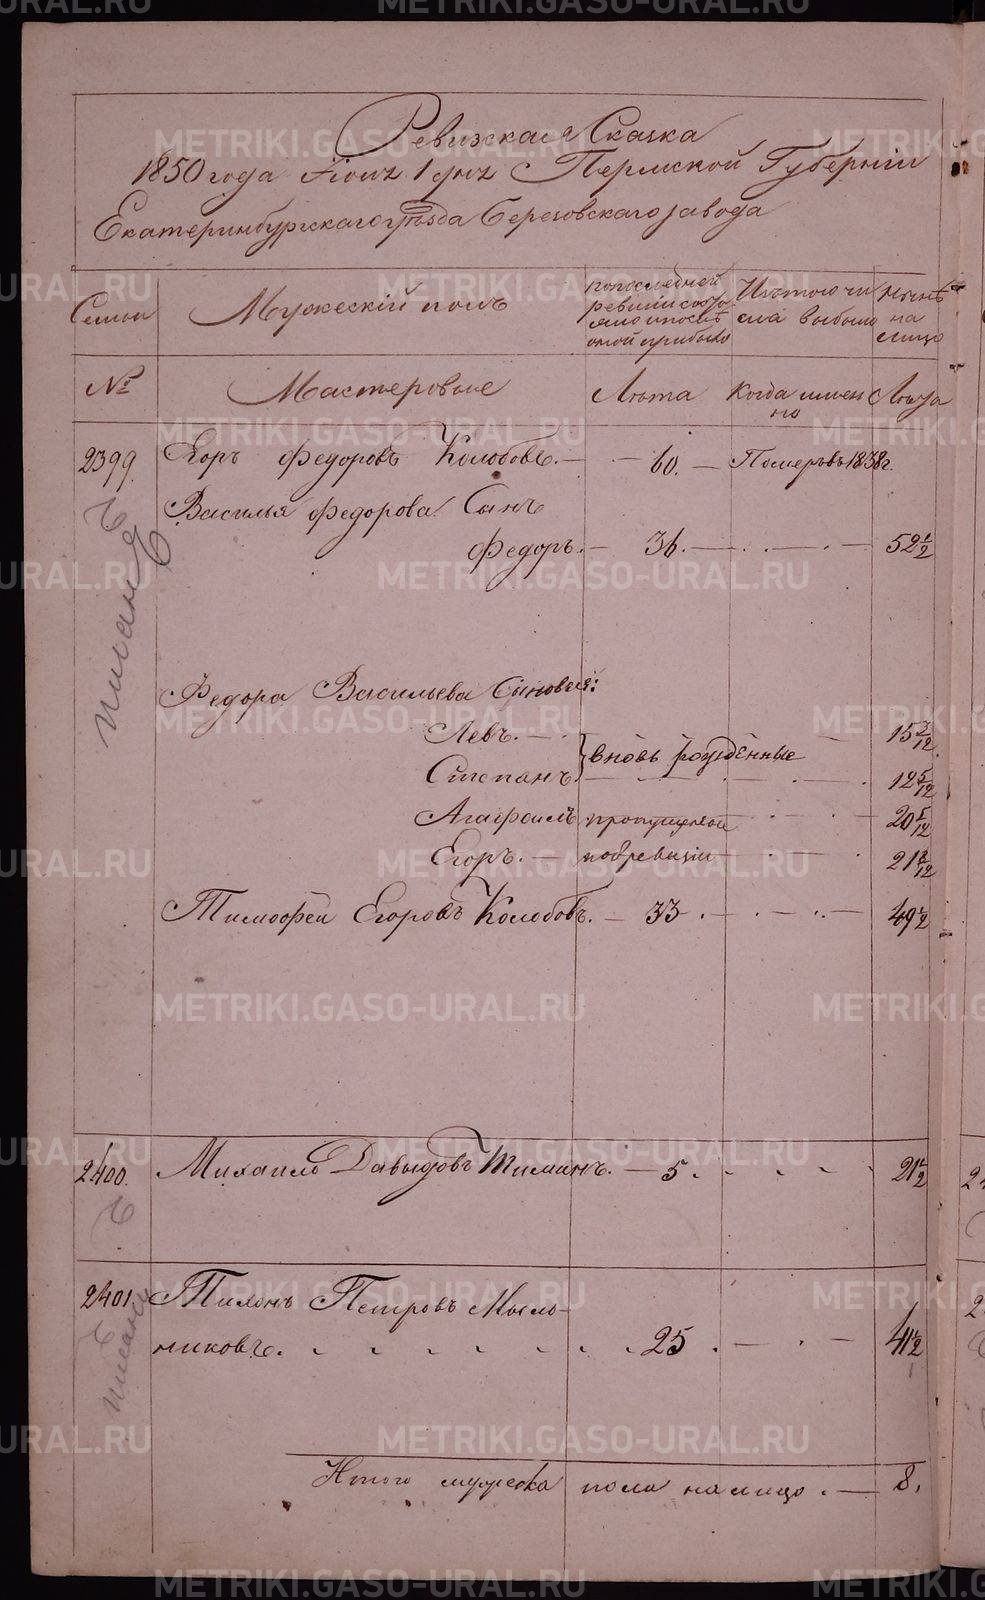 Ревизская Сказка
1850 года Iюня 1 дня Пермской Губернiи
Екатеринбургскаго уѣзда Березовскаго завода
Семьи
Мужескiй полъ
по последней
ревизiи состо
яло и после
оной прибыло
Изъ того чи
сла выбыло
Нынѣ
на
лицо
№
Мастеровые
Лѣта
Когда имен
но
Лѣта
2399.
Егоръ Федоровъ Колобовъ. — 60. — Померъ въ 1838 г.
Василья Федорова Сынъ
Федоръ. — 36. — 52 1/2
Федора Васильева Сыновья:
Левъ. — 15 3/12
вновь рожденные
Степанъ. 12 5/12
Агафонъ пропущенные 20 5/12
Егоръ. — по 8 ревизiи 21 8/12
Тимофей Егоровъ Колобовъ. — 33. — 49 1/2
писанъ
2400.
Михаило Давыдовъ Шиманъ. — 5. 21 1/2
2401
Тихонъ Петровъ Мыль-
никовъ. 25. — 41 1/2
писанъ
Итого мужеска пола на лицо. — 8.
METRIKI.GASO-URAL.RU